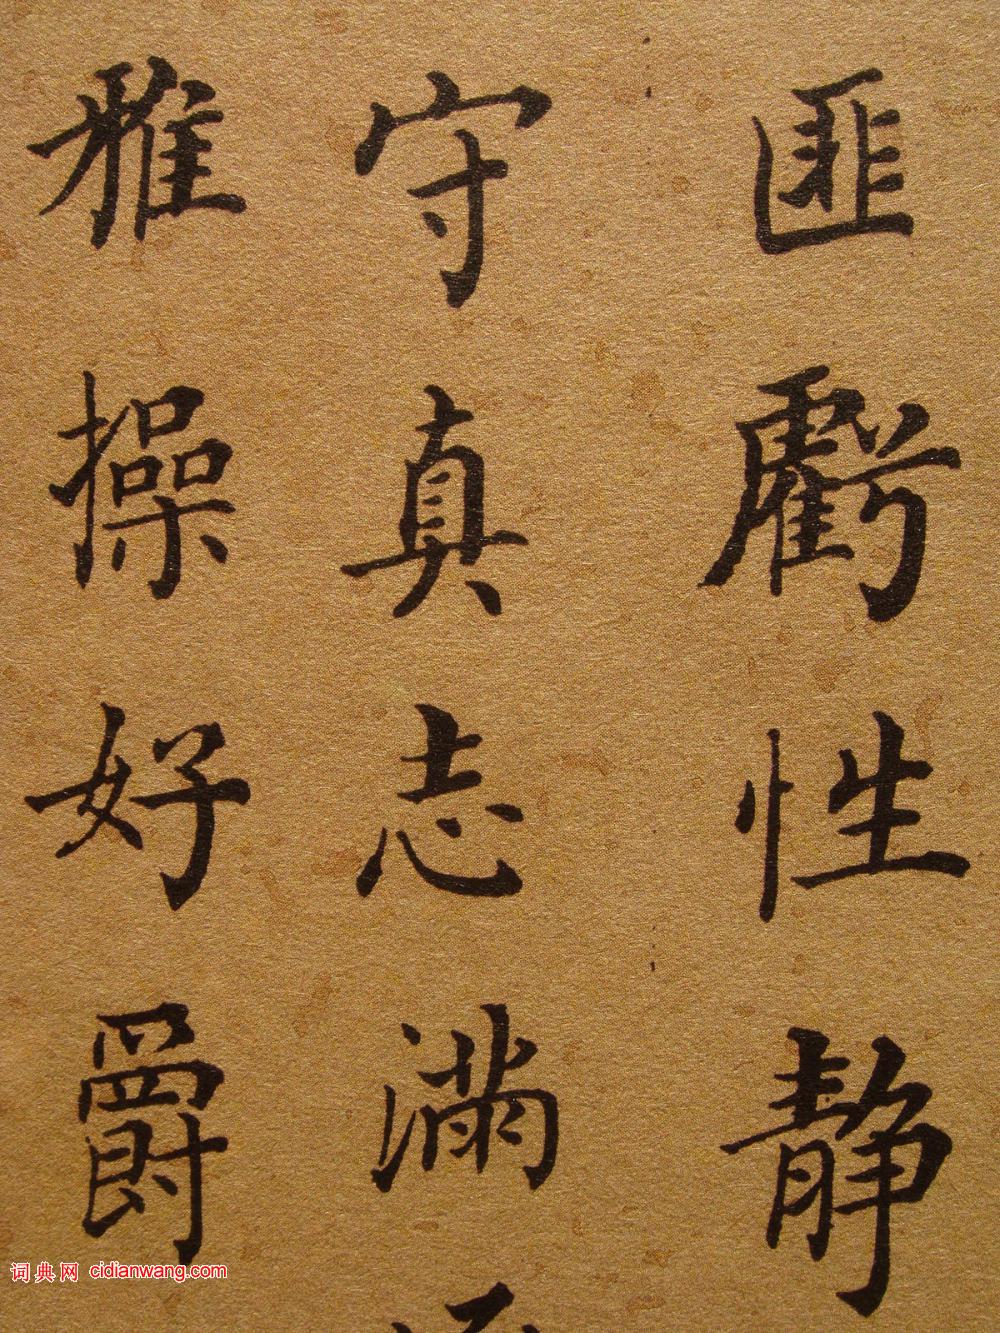 匪虧性静
守真志滿
雅操好爵
词典网 cidianwang.com